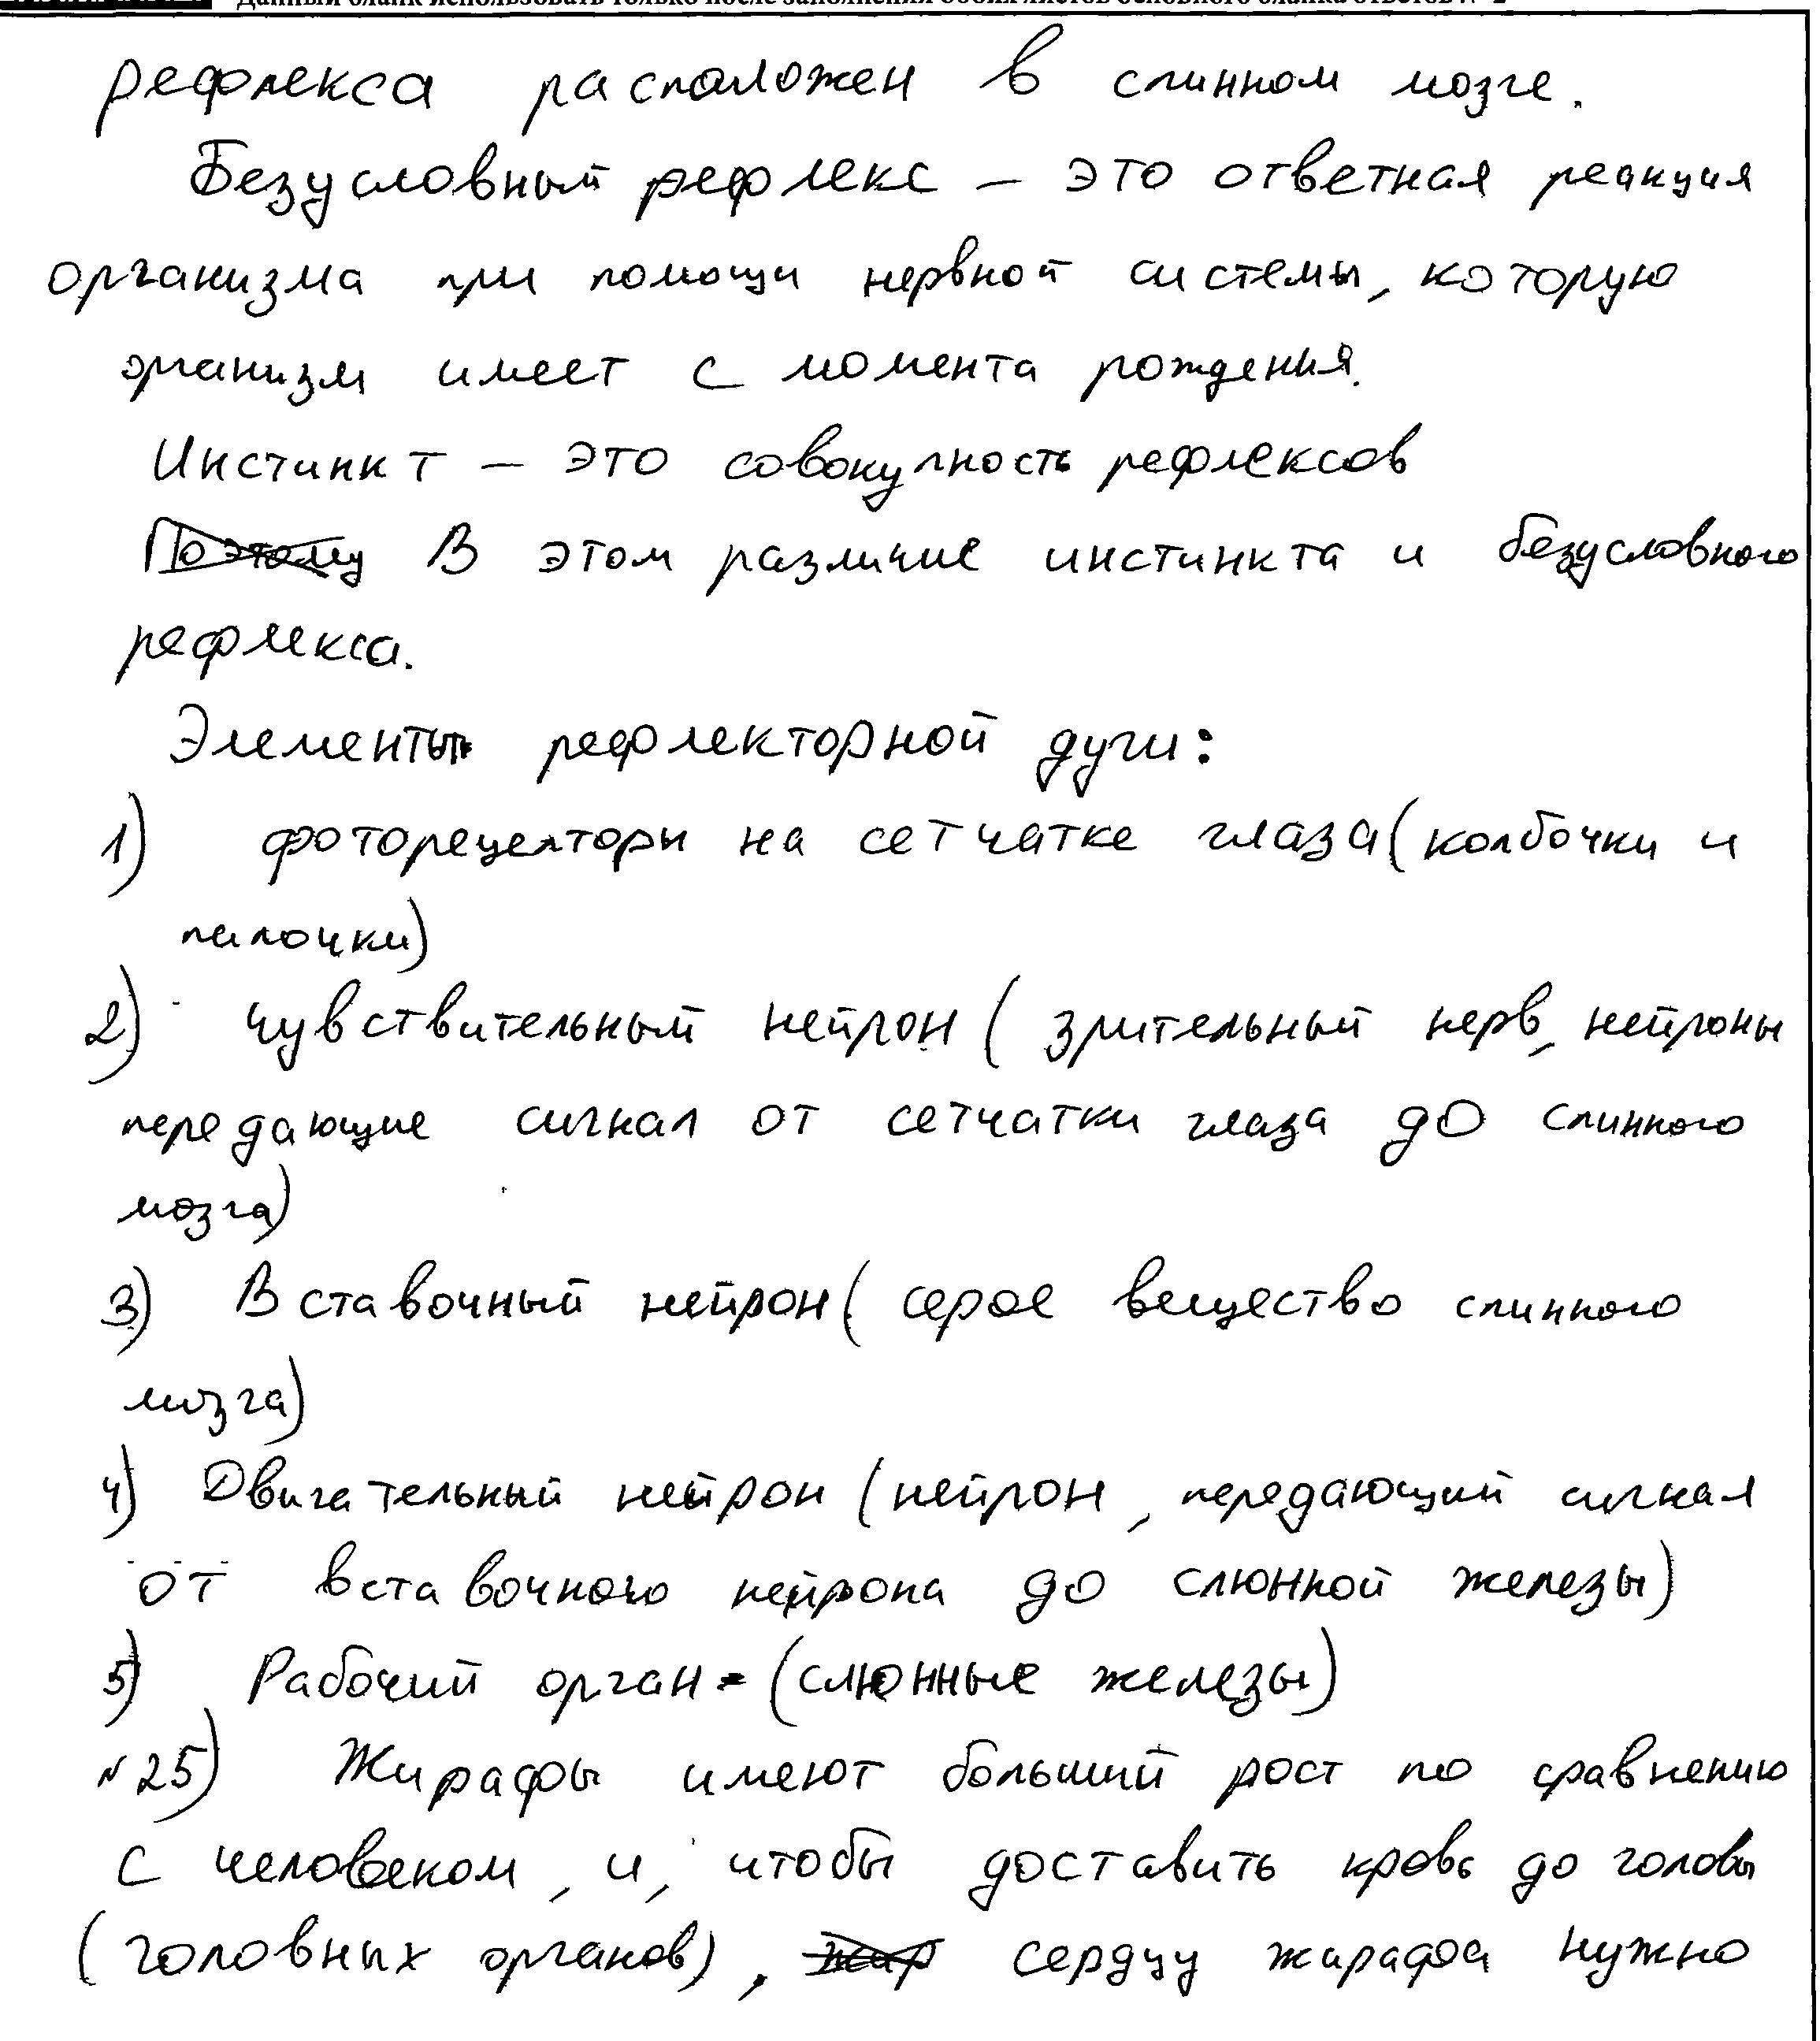 Данный бланк использовать только после заполнения обоих листов основного бланка ответов № 2
рефлекса расположен в спинном мозге.
Безусловный рефлекс – это ответная реакция
организма при помощи нервной системы, которую
организм имеет с момента рождения.
Инстинкт – это совокупность рефлексов
Поэтому В этом различие инстинкта и безусловного
рефлекса.
Элементы рефлекторной дуги:
1) фоторецепторы на сетчатке глаза (колбочки и
палочки)
2) чувствительный нейрон ( зрительный нерв, нейроны
передающие сигнал от сетчатки глаза до спинного
мозга)
3) Вставочный нейрон ( серое вещество спинного
мозга)
4) Двигательный нейрон (нейрон, передающий сигнал
от вставочного нейрона до слюнной железы)
5) Рабочий орган - (слюнные железы)
№25) Жирафы имеют больший рост по сравнению
с человеком, и, чтобы доставить кровь до головы
(головных органов), жир сердцу жирафа нужно